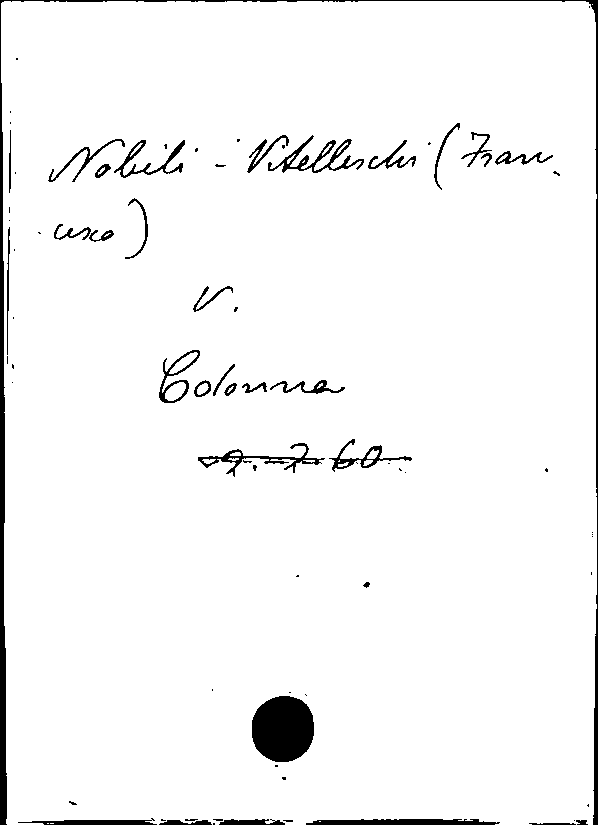 Nobili - Vitelleschi (Fran-
cesco)
V.
Colonna